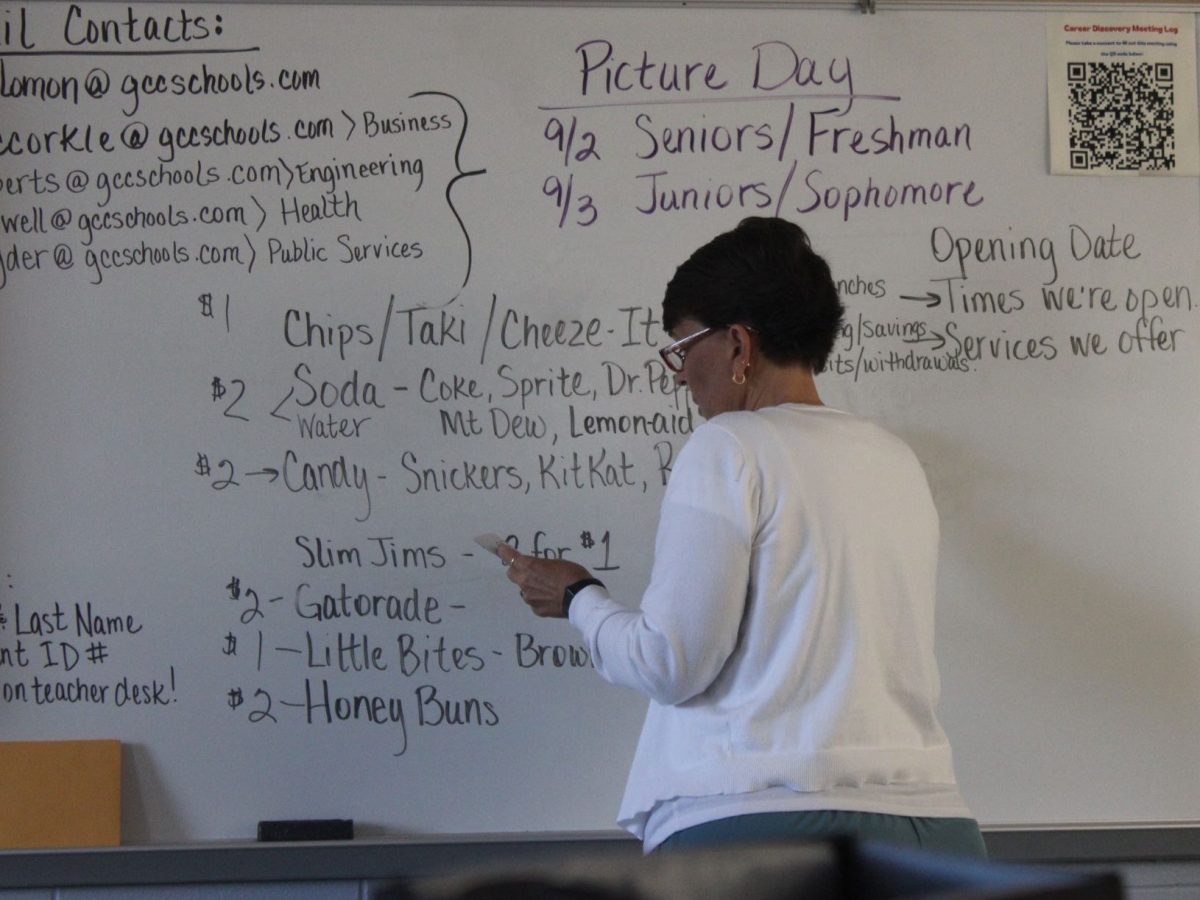 il Contacts:
lomon@gccschools.com
ccorkle@gccschools.com > Business
erts@gccschools.com>Engineering
well@gccschools.com > Health
yder@gccschools.com> Public Services
Picture Day
9/2 Seniors/Freshman
9/3 Juniors/Sophomore
Career Discovery Meeting Log
Please take a moment to fill out this meeting using
the QR code below:
Opening Date
nches → Times we're open
g/savings → Services we offer
its/withdrawals.
$1 Chips/Taki/Cheeze-It
$2 < Soda - Coke, Sprite, Dr. Pep
Water Mt Dew, Lemon-aid
$2 → Candy - Snickers, KitKat, R
Slim Jims - for $1
$2 - Gatorade -
$1 - Little Bites - Brow
$2 - Honey Buns
:
Last Name
nt ID #
on teacher desk!